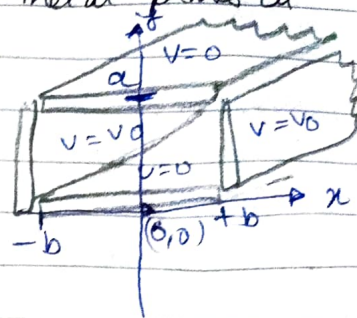 y
V=0
a
V=V0
V=V0
V=0
x
-b
(0,0)
+b